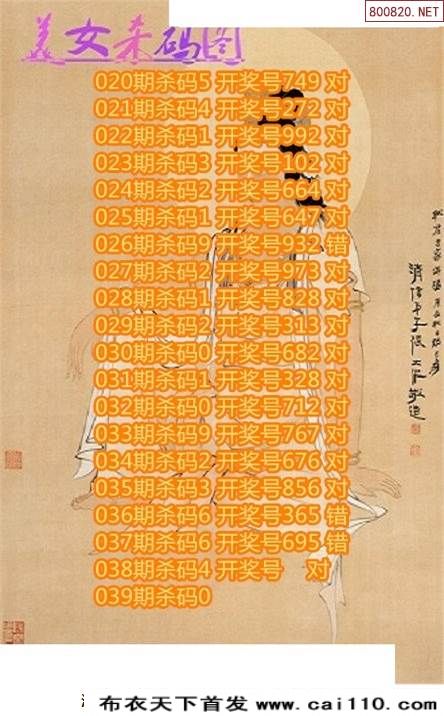 800820.NET
美女杀码图
020期杀码5 开奖号749 对
021期杀码4 开奖号272 对
022期杀码1 开奖号992 对
023期杀码3 开奖号102 对
024期杀码2 开奖号664 对
025期杀码1 开奖号647 对
026期杀码9 开奖号932 错
027期杀码2 开奖号973 对
028期杀码1 开奖号828 对
029期杀码2 开奖号313 对
030期杀码0 开奖号682 对
031期杀码1 开奖号328 对
032期杀码0 开奖号712 对
033期杀码9 开奖号767 对
034期杀码2 开奖号676 对
035期杀码3 开奖号856 对
036期杀码6 开奖号365 错
037期杀码6 开奖号695 错
038期杀码4 开奖号 对
039期杀码0
布衣天下首发 www.cai110.com